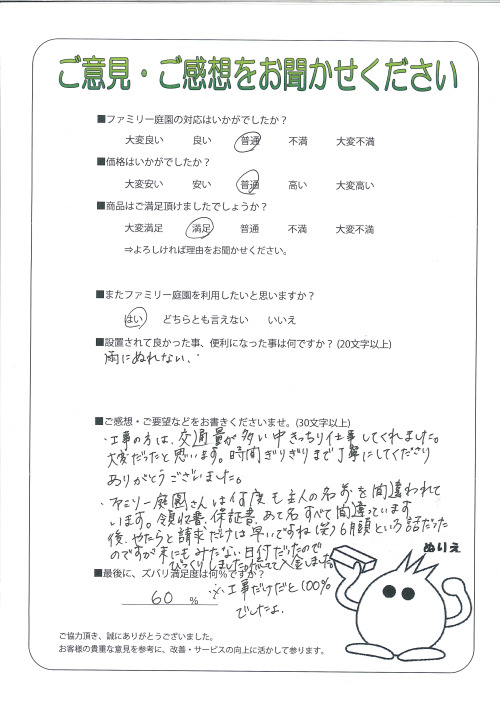 ご意見・ご感想をお聞かせください
■ファミリー庭園の対応はいかがでしたか？
大変良い 良い 普通 不満 大変不満
■価格はいかがでしたか？
大変安い 安い 普通 高い 大変高い
■商品はご満足頂けましたでしょうか？
大変満足 満足 普通 不満 大変不満
⇒よろしければ理由をお聞かせください。
■またファミリー庭園を利用したいと思いますか？
はい どちらとも言えない いいえ
■設置されて良かった事、便利になった事は何ですか？(20文字以上)
雨にぬれない、
■ご感想・ご要望などをお書きくださいませ。(30文字以上)
・工事の方は、交通量が多い中きっちり仕事してくれました。
大変だったと思います。時間ぎりぎりまで丁寧にしてくださり
ありがとうございました。
・ファミリー庭園さんは何度も主人の名前を間違われて
います。領収書、保証書、あて名すべて間違っています
後、やたらと請求だけは早いですね(笑) 6月頭という話だった
のですが末にもみたない日付だったので
びっくりしました。がんばって入金しました。
■最後に、ズバリ満足度は何％ですか？
60 %
※工事だけだと100%
でしたよ.
ぬりえ
ご協力頂き、誠にありがとうございました。
お客様の貴重な意見を参考に、改善・サービスの向上に活かして参ります。